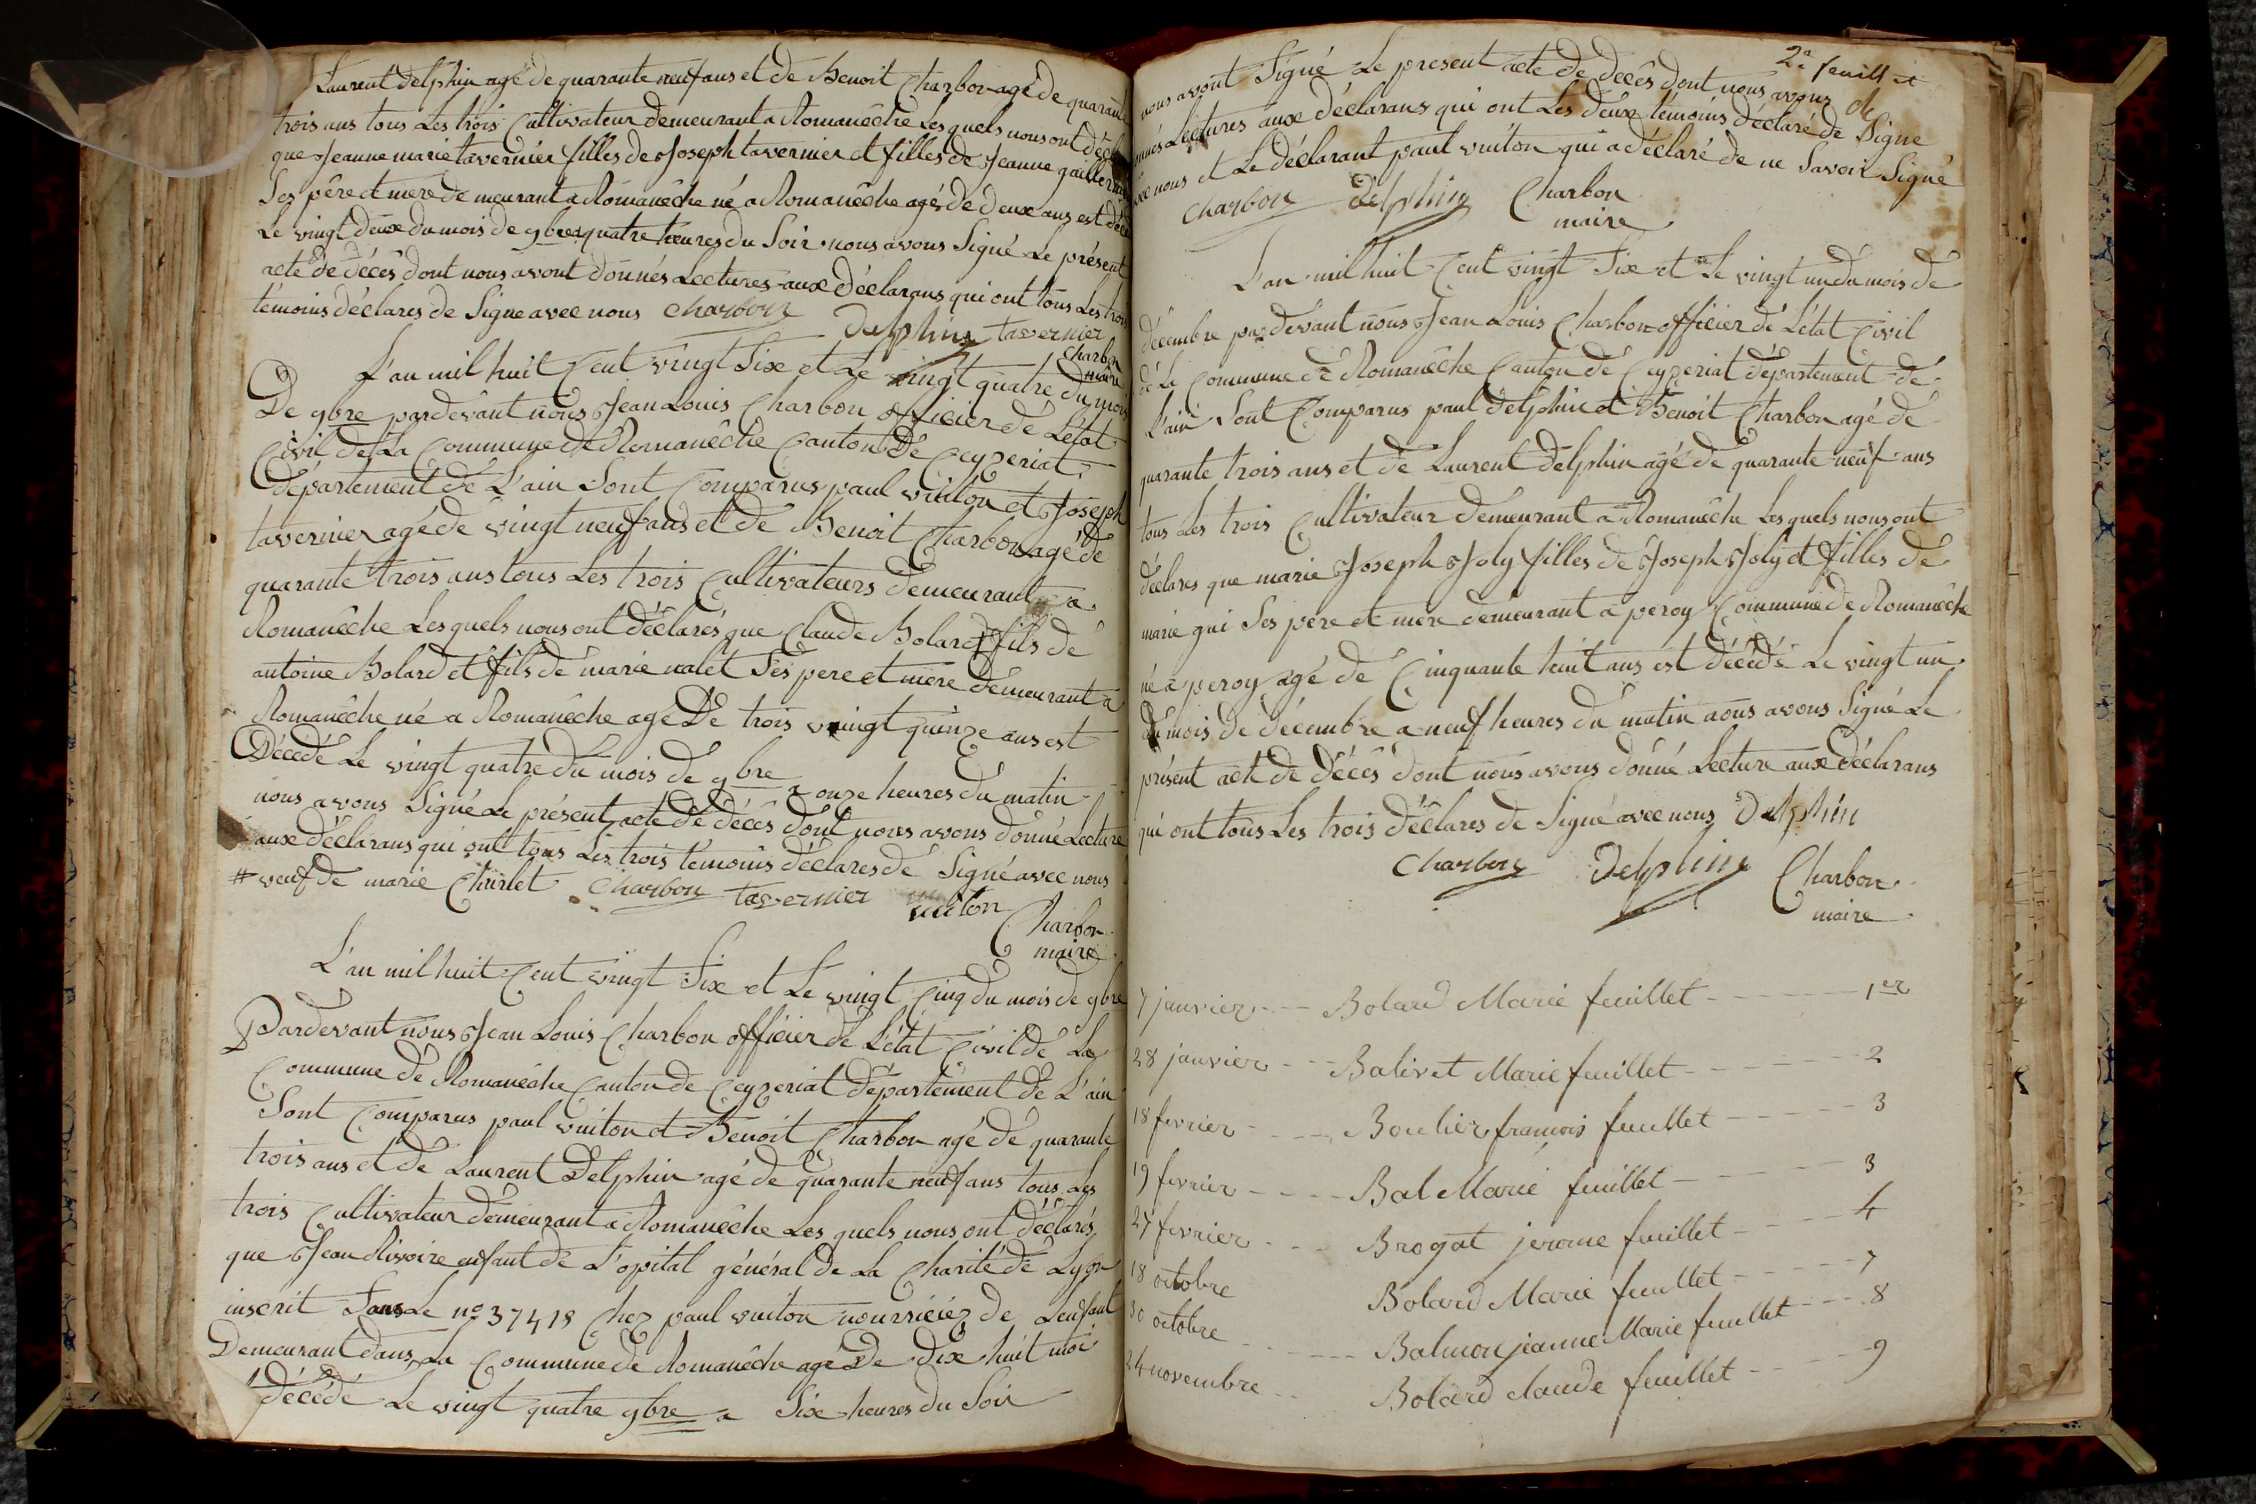 Laurent Delphin agé de quarante neuf ans et de Benoit Charbon agé de quarante
trois ans tous Les trois Cultivateur demeurant a Romanêche Lesquels nous ont décla
que Jeanne marie tavernier filles de Joseph tavernier et filles de Jeanne
Ses pêre et mere demeurant a Romanêche né a Romanêche agés de deux ans est décé
Le vingt deux du mois de 9bre a quatre heures du Soir nous avons Signé Le présent
acte de décès dont nous avont données Lectures aux déclarans qui ont tous Les trois
témoins déclares de Signe avec nous Charbon Delphin tavernier
Charbon
maire
L'an mil huit Cent vingt Six et Le vingt quatre du mois
De 9bre pardevant nous Jean Louis Charbon officier de L'état
Civil de La Commune de Romanêche Canton De Ceyzeriat
département de L'ain Sont Comparus paul vuiton et Joseph
tavernier agé de vingt neuf ans et de Benoit Charbon agé de
quarante trois ans tous Les trois Cultivateurs demeurant a
Romanêche Lesquels nous ont déclarés que Claude Bolard # fils de
antoine Bolard et fils de marie nalet Ses pere et mere demeurant a
Romanêche né a Romanêche agé De trois vingt quinze ans est
Décedé Le vingt quatre du mois de 9bre a onze heures du matin
nous avons Signé Le présent acte de décès dont nous avons donné Lecture
aux déclarans qui ont tous Les trois témoins déclares de Signé avec nous
# veuf de marie Charbon tavernier vuiton
Charbon
maire
L'an mil huit Cent vingt Six et Le vingt Cinq du mois de 9bre
Pardevant nous Jean Louis Charbon officier de L'état Civil de La
Commune de Romanêche Canton de Ceyzeriat département de L'ain
Sont Comparus paul vuiton et Benoit Charbon agé de quarante
trois ans et de Laurent Delphin agé de quarante neuf ans tous Les
trois Cultivateur demeurant a Romanêche Les quels nous ont déclarés
que Jean Rivoire enfant de L'opital général de La Charité de Lyon
inscrit Sous Le no 37418 Chez paul vuiton nourriciez de Lenfant
Demeurant dans La Commune de Romanêche agé De dix huit moi
décédé Le vingt quatre 9bre a Six heures du Soir
2e feuillet
nous avont Signé Le present acte de décès dont nous avons
donnés Lectures aux déclarans qui ont Les deux temoins déclaré de Signe
avec nous et Le déclarant paul vuiton qui a déclaré de ne Savoir Signé
Charbon Delphin Charbon
maire
L'an mil huit Cent vingt Six et Le vingt un du mois de
décembre pardevant nous Jean Louis Charbon officier de L'état Civil
de La Commune de Romanêche Canton de Ceyzeriat département de
L'ain Sont Comparus paul Delphin et Benoit Charbon agé de
quarante trois ans et de Laurent Delphin agé de quarante neuf ans
tous Les trois Cultivateur demeurant a Romanêche Les quels nous ont
déclares que marie Joseph Joly filles de Joseph Joly et filles de
marie gui Ses père et mere demeurant a peroy Commune de Romanêche
né a peroy agé de Cinquante huit ans est décédé Le vingt un
du mois de décembre a neuf heures du matin nous avons Signé Le
présent acte de décès dont nous avons donné Lecture aux déclarans
qui ont tous Les trois déclares de Signé avec nous Delphin
Charbon Delphin Charbon
maire
7 janvier --- Bolard Marie feuillet ------ 1er
28 janvier --- Balivet Marie feuillet ----- 2
18 fevrier ---- Boulier francois feuillet ----- 3
19 fevrier ---- Bal Marie feuillet ----- 3
27 fevrier ---- Brogat jerome feuillet ---- 4
18 octobre Bolard Marie feuillet ---- 7
30 octobre ------ Balmon jeanne Marie feuillet --- 8
24 novembre -- Bolard claude feuillet ---- 9